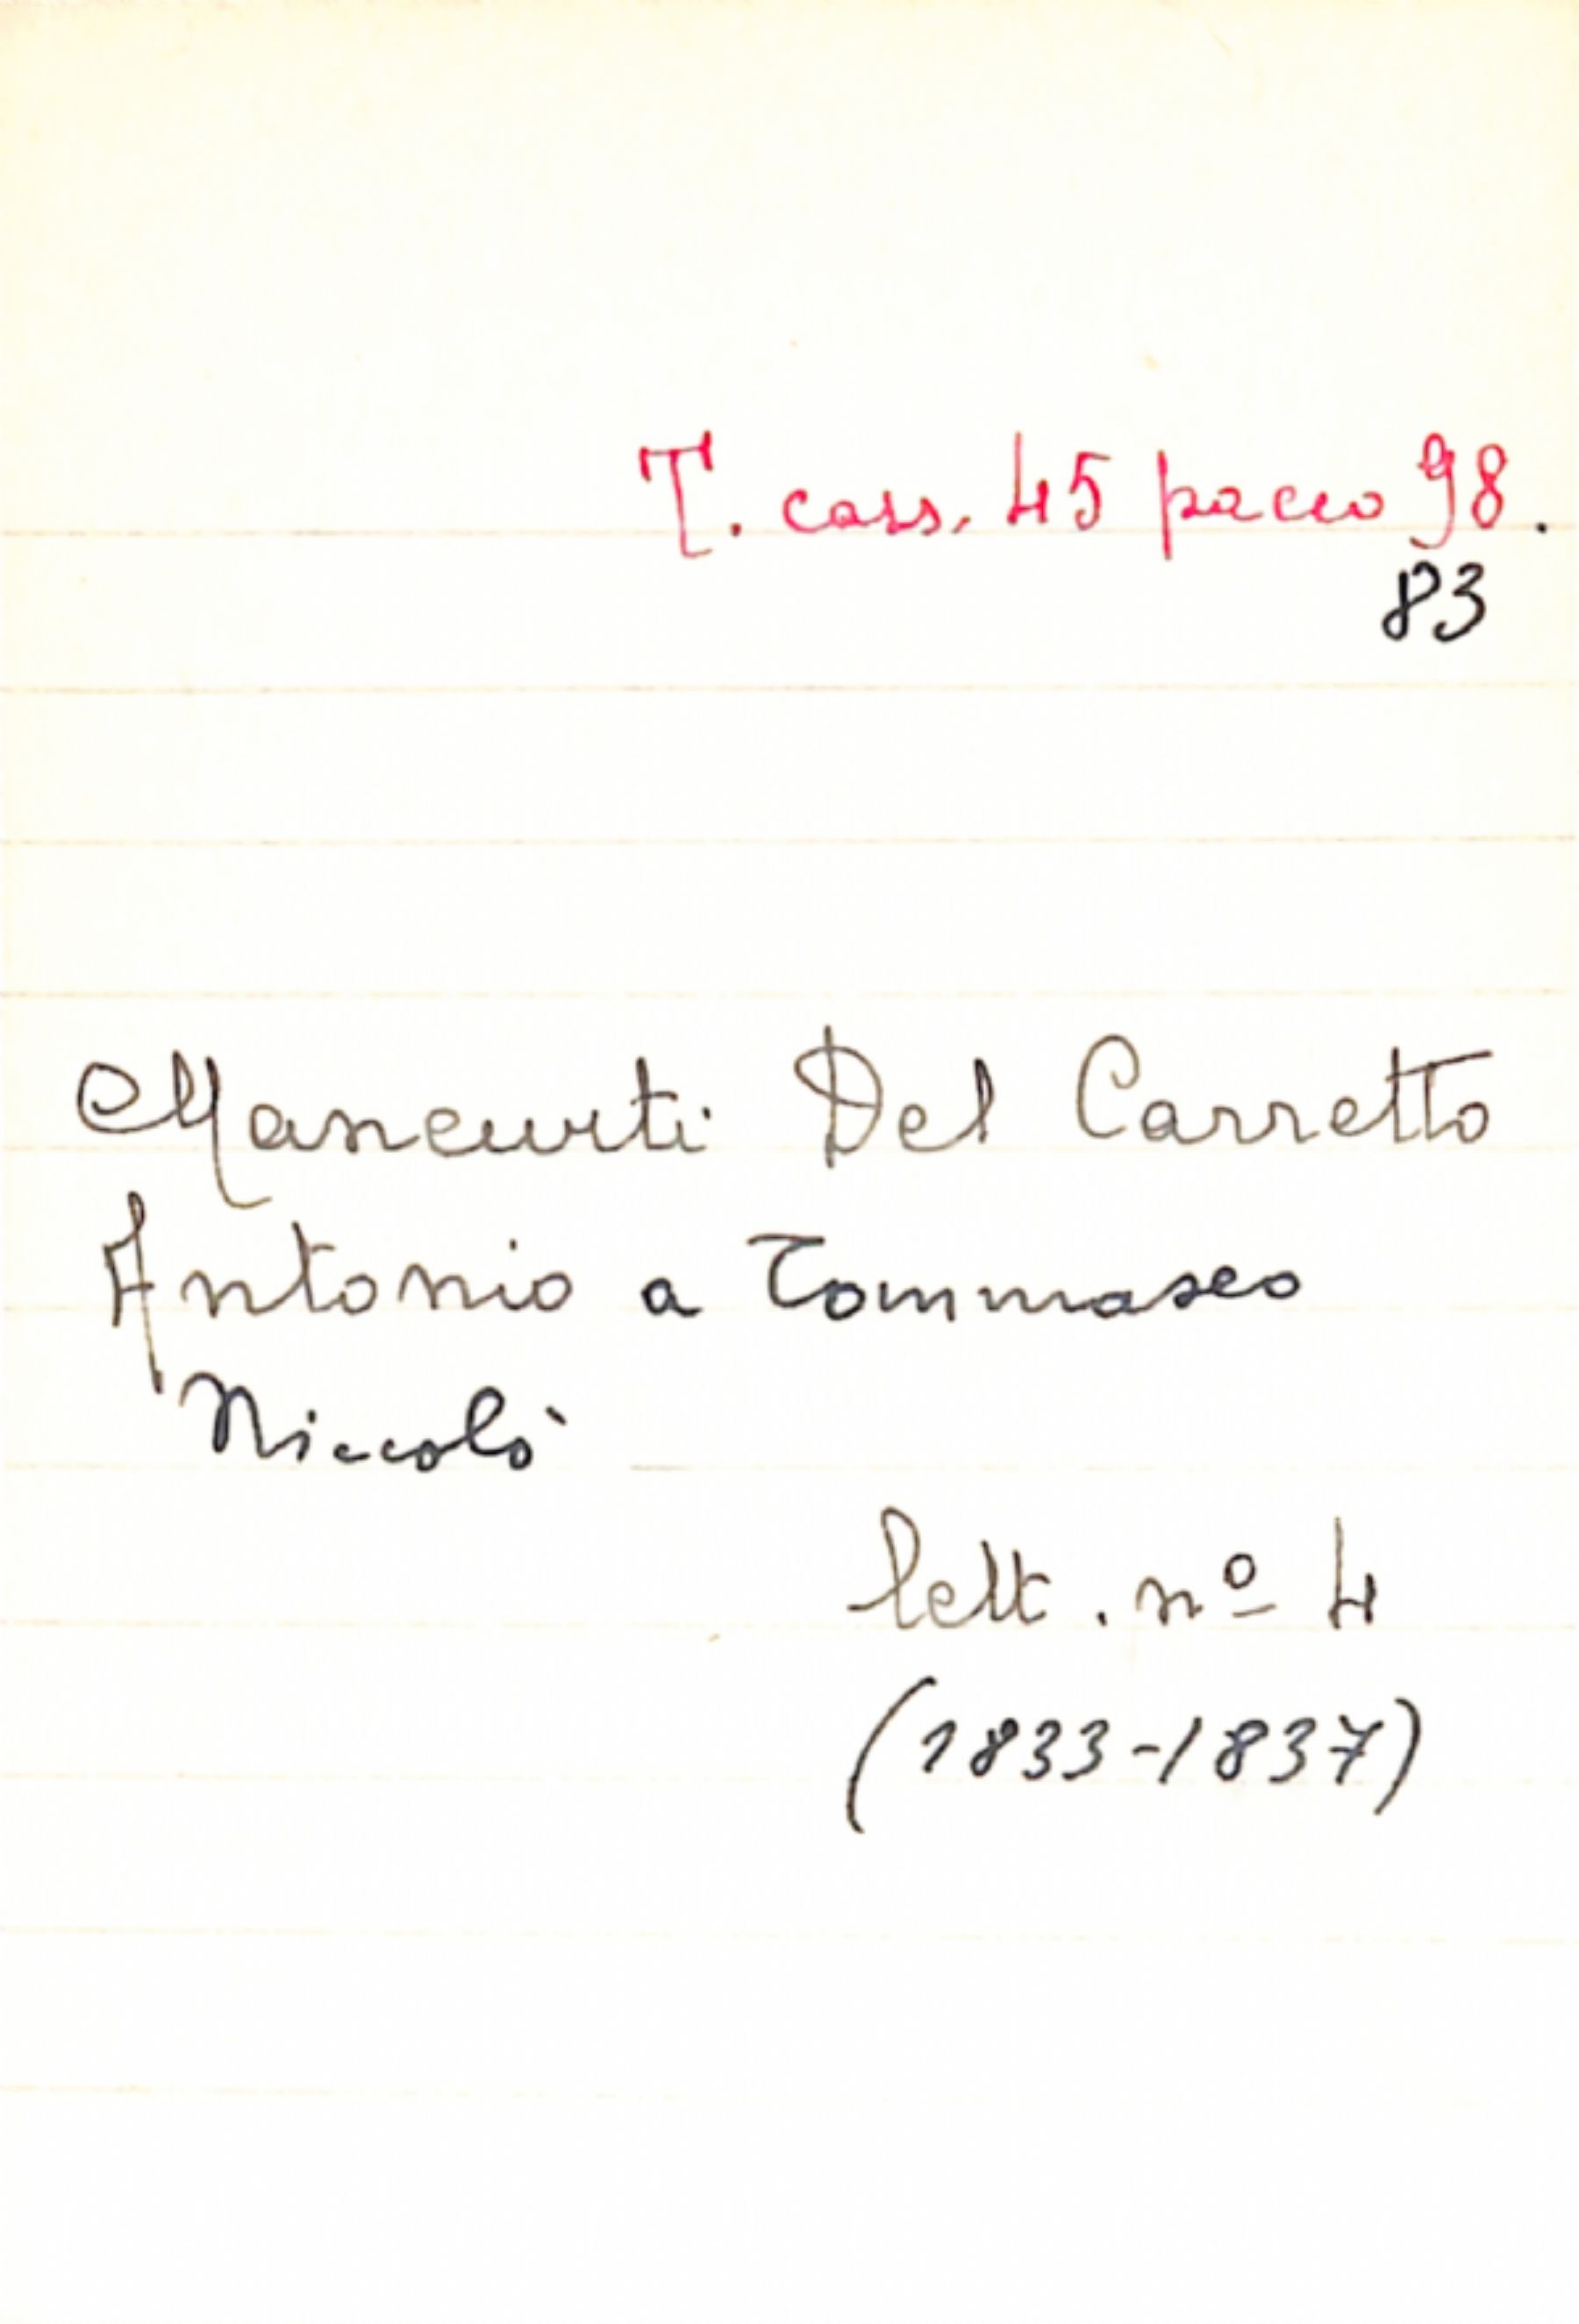 T. cass. 45 pacco 98.
83
Mancurti Del Carretto
Antonio a Tommaseo
Niccolò
lett. nº 4
(1833-1837)